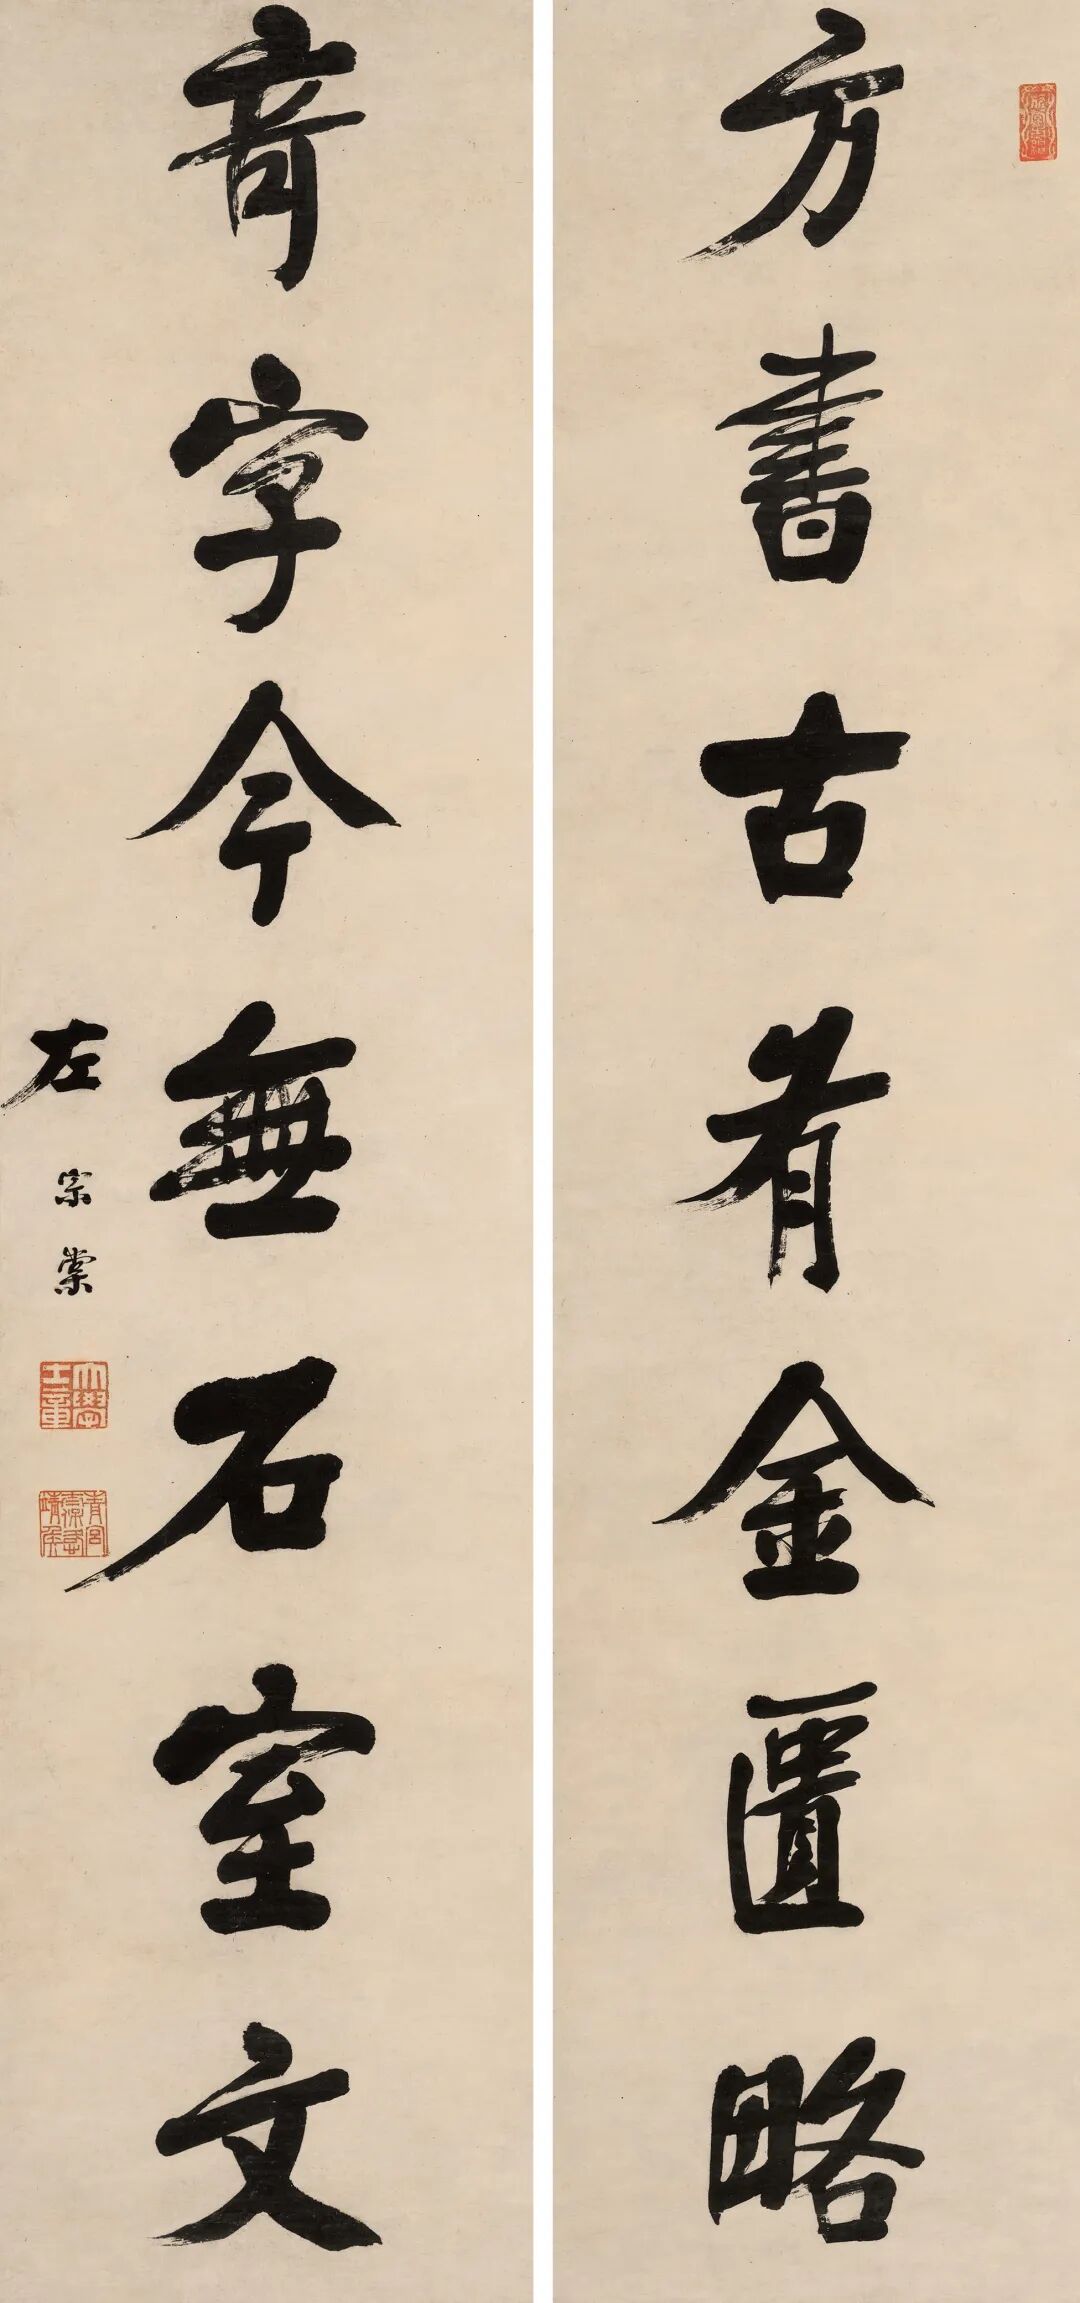 方書古有金匱略
奇字今無石室文
左宗棠
大學士章